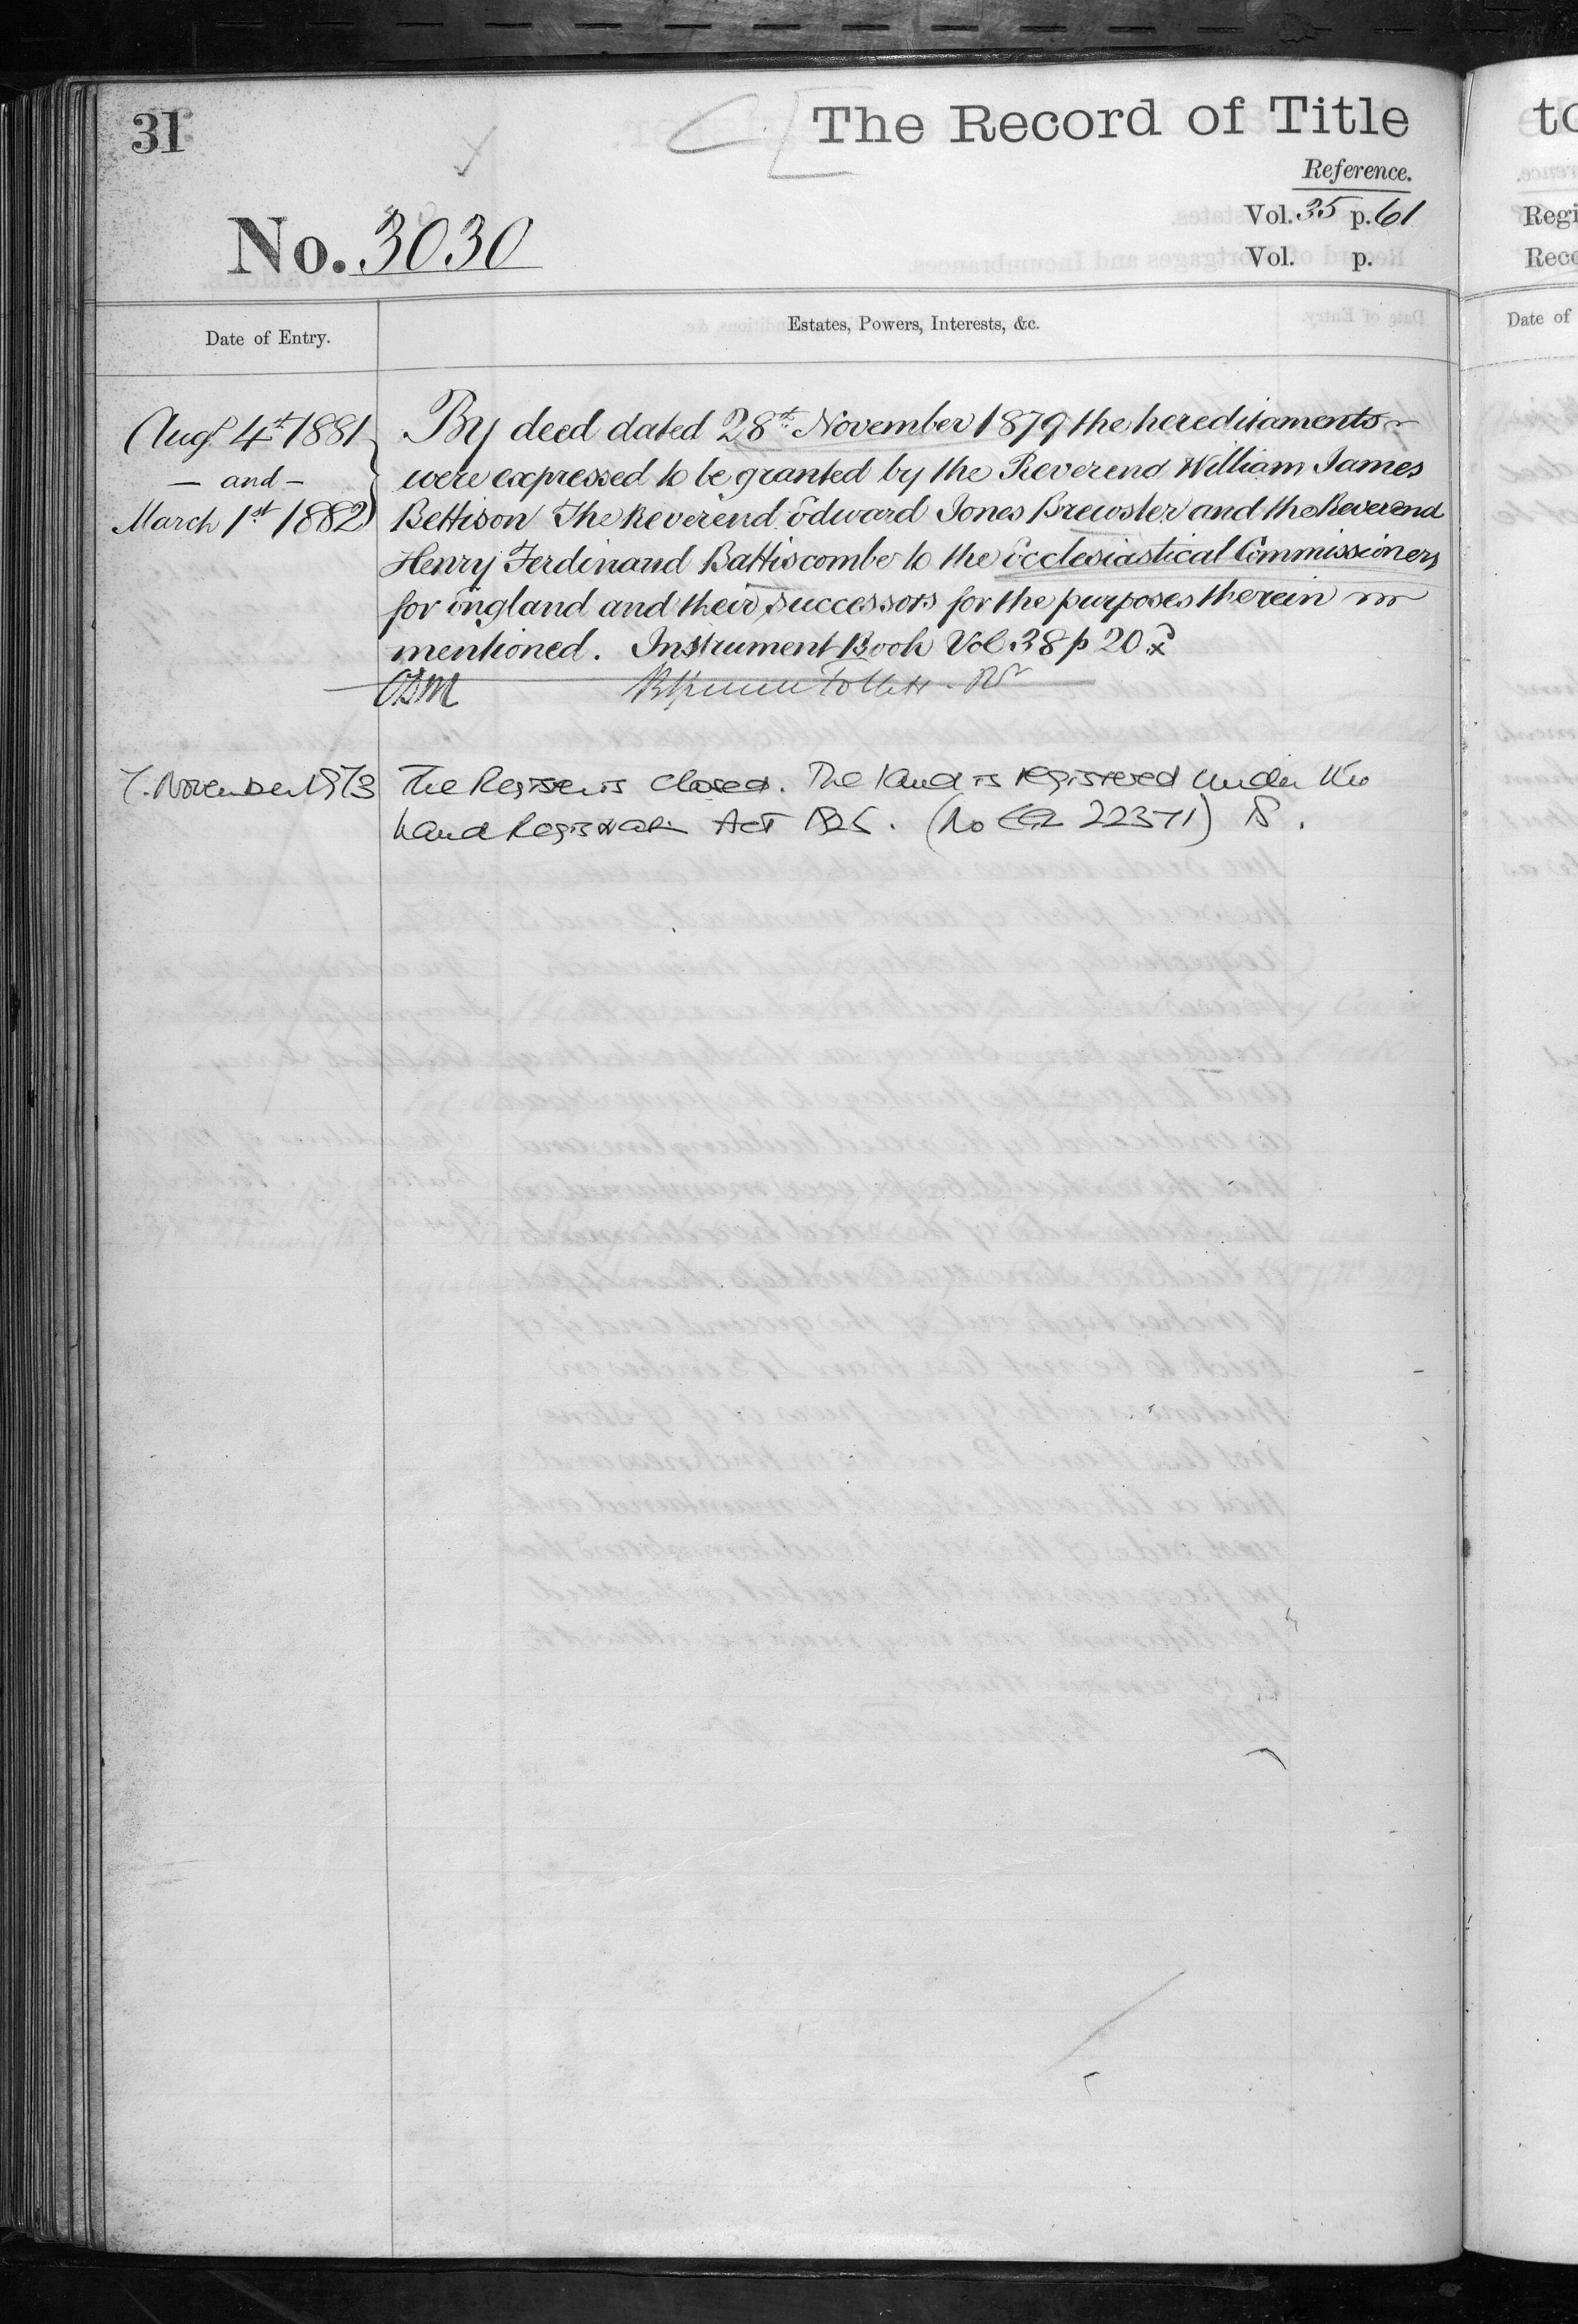 31
The Record of Title
Reference.
Vol. 35 p. 61
Vol. p.
No. 3030
Date of Entry.
Estates, Powers, Interests, &c.
Augt 4th 1881
- and -
March 1st 1882
By deed dated 28th November 1879 the hereditaments
were expressed to be granted by the Reverend William James
Bettison The Reverend Edward Jones Brewster and the Reverend
Henry Ferdinand Battiscombe to the Ecclesiastical Commissioners
for England and their successors for the purposes therein
mentioned. Instrument Book Vol 38 p 20
7. November 1973
The Register is closed. The land is registered under the
Land Registration Act 1925. (No 22371)
to
Regi
Reco
Date of